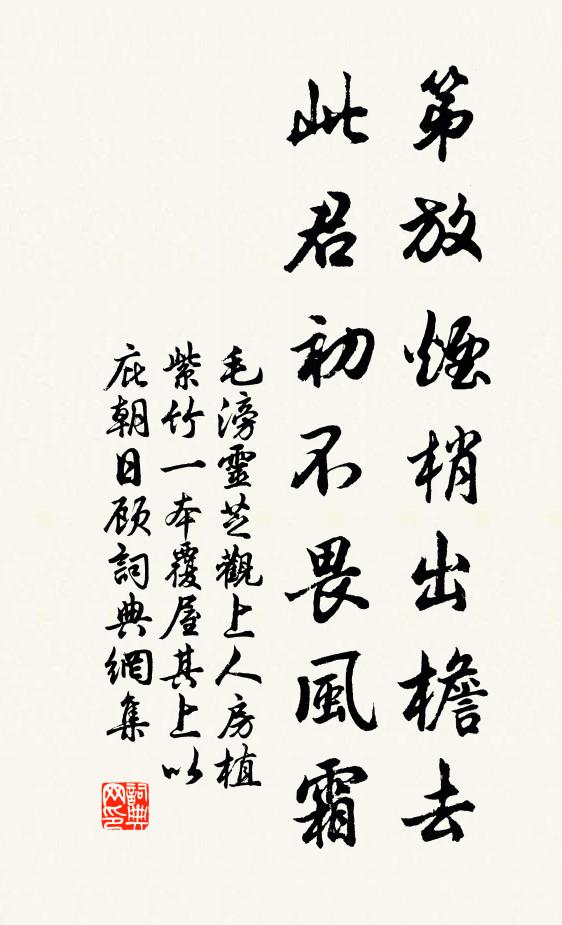 第放煙梢出檐去
此君初不畏風霜
毛滂靈芝觀上人房植
紫竹一本覆屋其上以
庇朝日顾詞典網集
詞典
网印